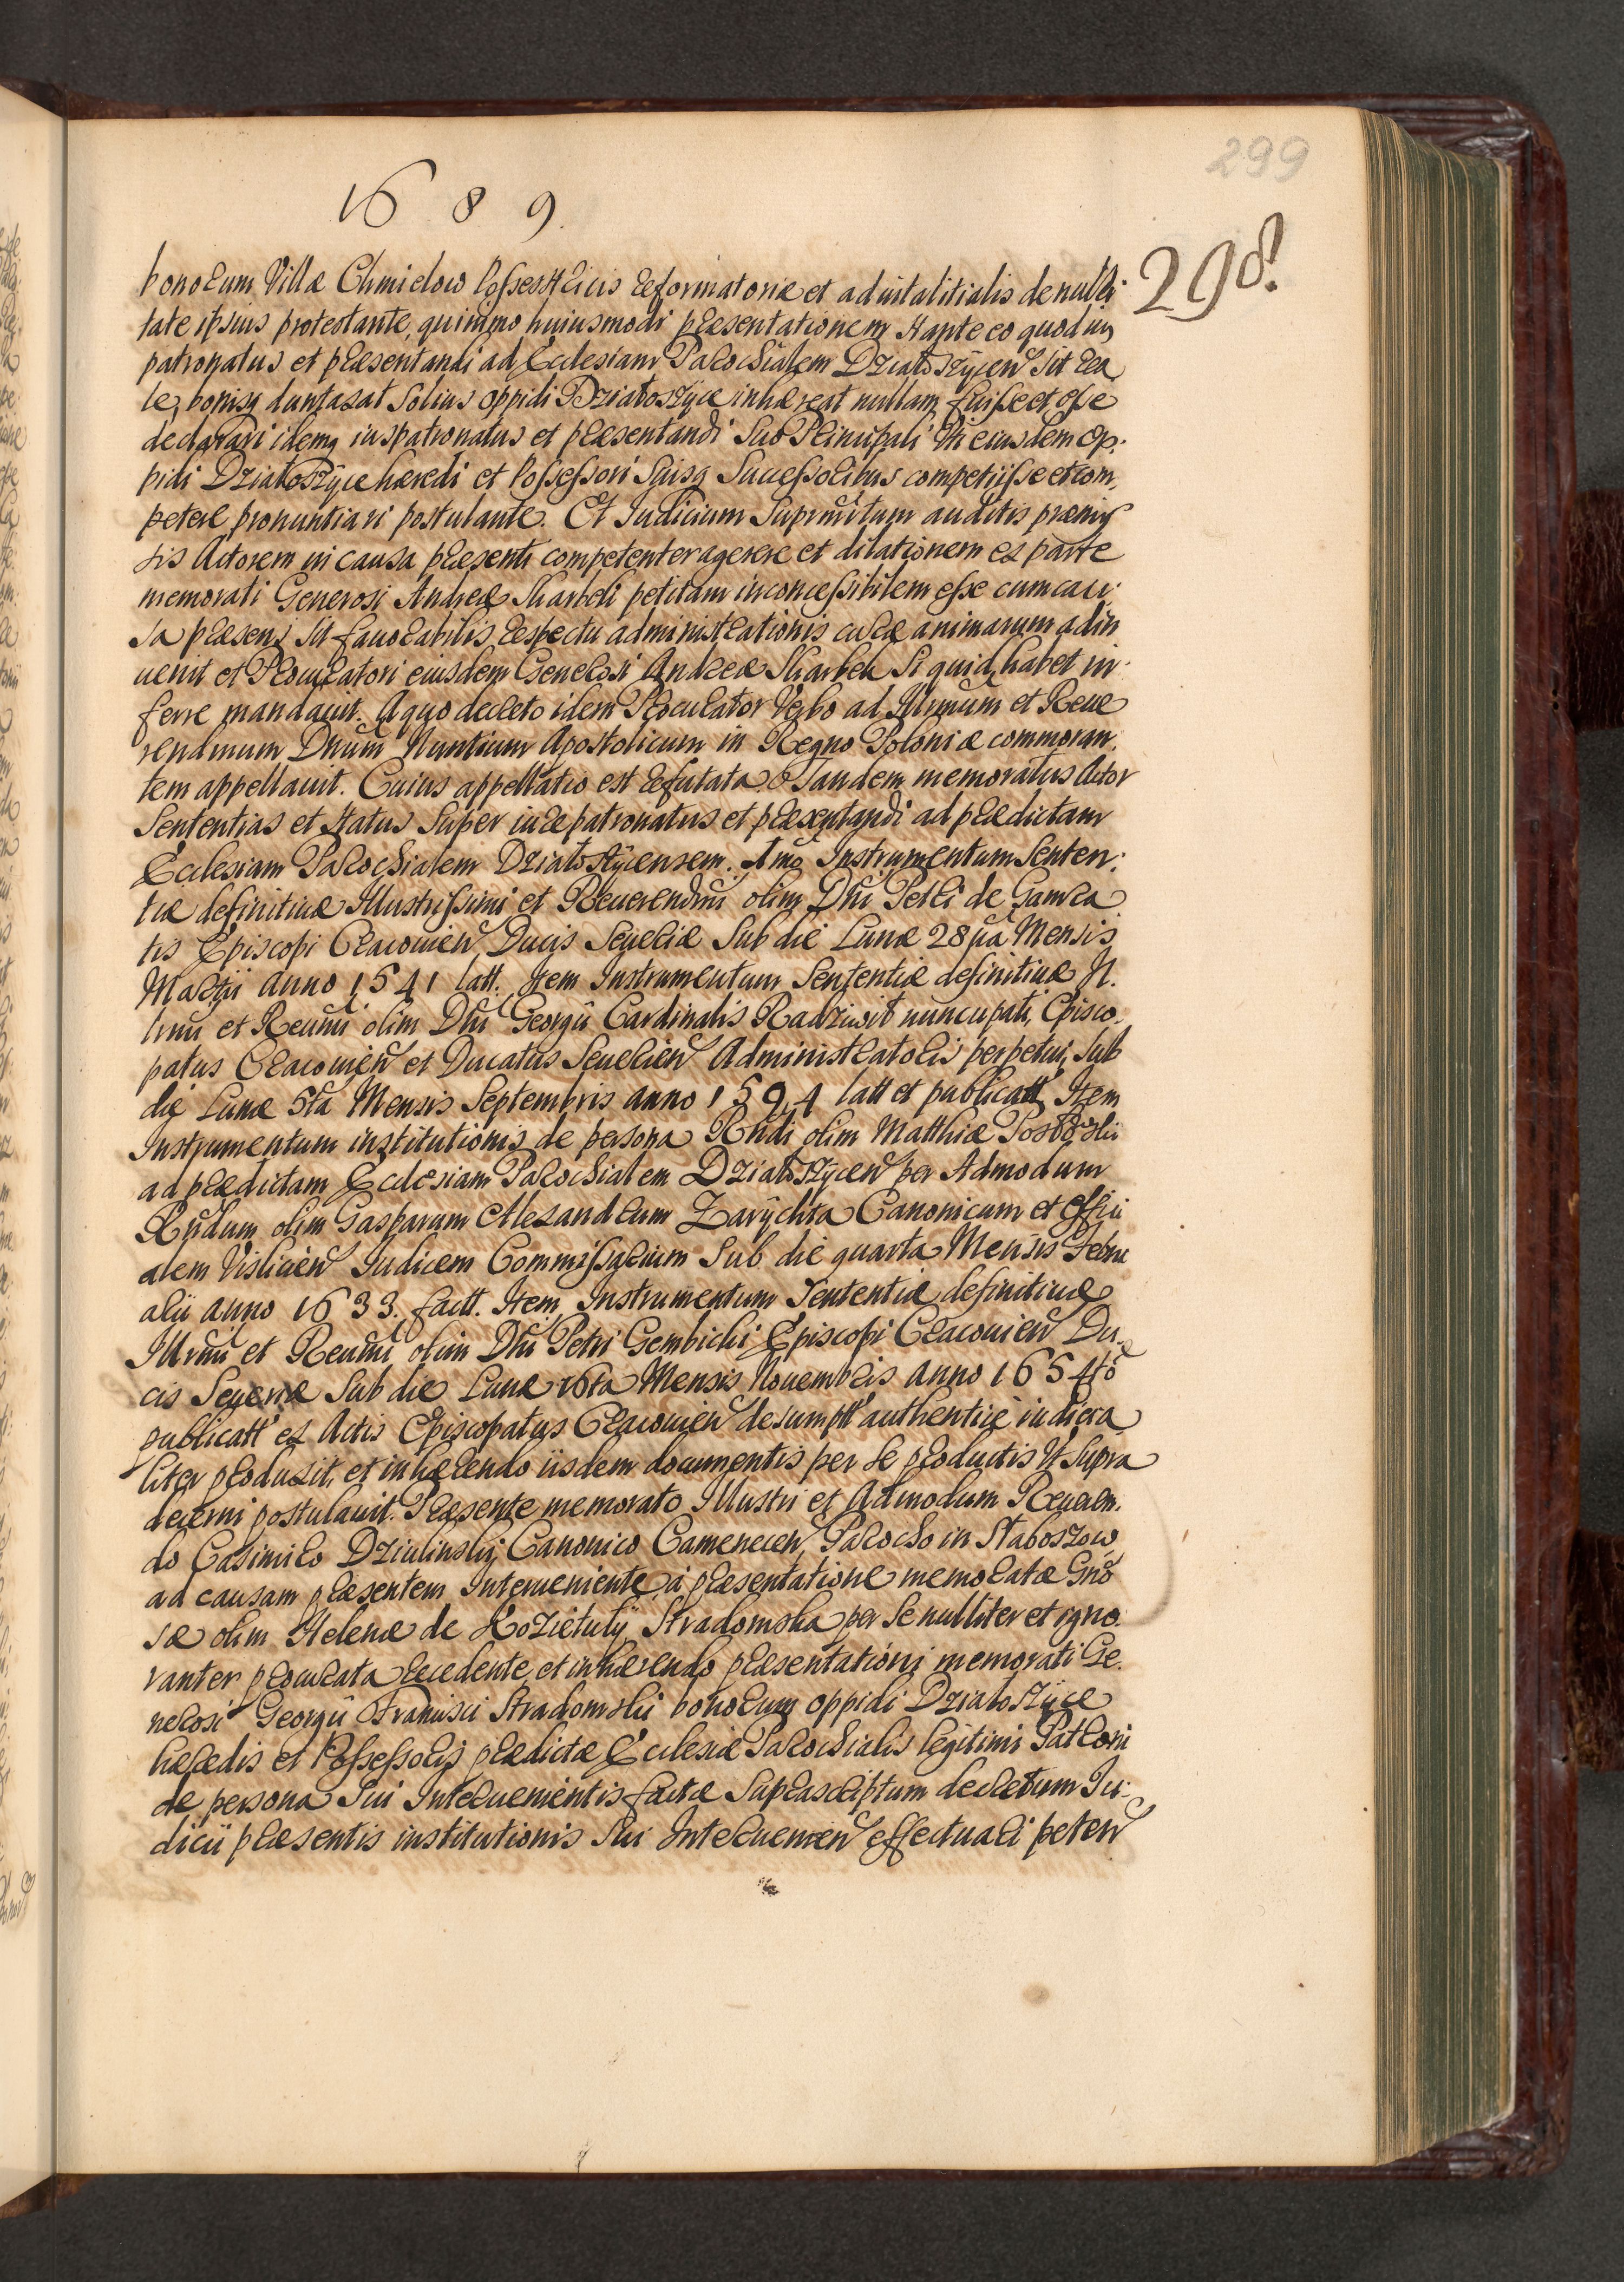 299
1689.
298.
bonorum Villæ Chmielow Possessricis reformatoriæ et aduitalitialis de nulli
tate ipsius protestante, quinimo huiusmodi præsentationem stante eo quod ius
patronatus et præsentandi ad Ecclesiam Parochialem Dziatoszÿceñ sit rea
le, bonisq duntaxat solius oppidi Dziatoszÿce inhæreat nullam fuisse et esse
declarari idemq iuspatronatus et præsentandi sub Principali Vti eiusdem op.
pidi Dziatoszÿce hæredi et Possessori suisq Successoribus competijsse et com,
petere pronuntiari postulante. Et Iudicium supmũ tum auditis præmis
sis Actorem in causa præsenti competenter agerere et dilationem ex parte
memorati Generosi Andreæ Skarbek petitam inconcessibilem esse cum cau:
sa præsens sit fauorabilis respectu administrationis curæ animarum adin
uenit et Procuratori eiusdem Generosi Andreæ Skarbek si quid habet in:
ferre mandauit. A quo decreto idem Procurator Verbo ad Illrmum et Reue
rendmum Dnum Nuntium Apostolicum in Regno Poloniæ commoran.
tem appellauit. Cuius appellatio est refutata. Tandem memoratus Actor
Sententias et status super iure patronatus et præsentandi ad prædictam
Ecclesiam Parochialem Dziatoszÿcensem. Imo Instrumentum senten:
tiæ definitiuæ Illustrissimi et Reuerendmi olim Dñi Petri de Gamra
tis Episcopi Cracouieñ Ducis Seueriæ sub die Lunæ 28ua Mensis
Martij anno 1541 latt. Item Instrumentum sententiæ definitiuæ Il.
lrmi et Reuñi olim Dñi Georgij Cardinalis Radziwił nuncupati, Episco.
patus Cracouieñ et Ducatus Seuerieñ Administratoris perpetui, sub
die Lunæ 5ta Mensis Septembris anno 1594 latt et publicatt, Item
Instrumentum institutionis de persona Rndi olim Matthiæ
ad prædictam Ecclesiam Parochialem Dziatoszÿceñ per Admodum
Rndum olim Gasparum Alexandrum Zarÿchta Canonicum et Offici
alem Vislicieñ Iudicem Commissarium sub die quarta Mensis Febru
arij anno 1633. factt. Item, Instrumentum Sententiæ definitiuæ
Illrmi et Reuñi olim Dñi Petri Gembicki Episcopi Cracouieñ Du.
cis Seueriæ sub die Lunæ 16ta Mensis Nouembris anno 1654to
publicatt ex Actis Episcopatus Cracouieñ desumptt authentice iudicia
liter produxit, et inhærendo iisdem documentis per se productis Vt supra
decerni postulauit. Præsente memorato Illustri et Admodum Reueren.
do Casimiro Dziulinskij Canonico Cameneceñ, Parocho in Staboszow
ad causam præsentem Interueniente, à præsentatione memoratæ Gnõ
sæ olim Helenæ de Kozietulÿ Stradomska per se nulliter et igno.
ranter procurata recedente, et inhærendo præsentationi memorati Ge.
nerosi Georgij Francisci Stradomski bonorum oppidi Dziatoszÿce
hæredis et Possessoris prædictæ Ecclesiæ Parochialis legitimi Patroni
de persona sui Interuenientis factæ suprascriptum decretum Iu:
dicii præsentis institutionis sui Interuenieñ effectuari peteñ